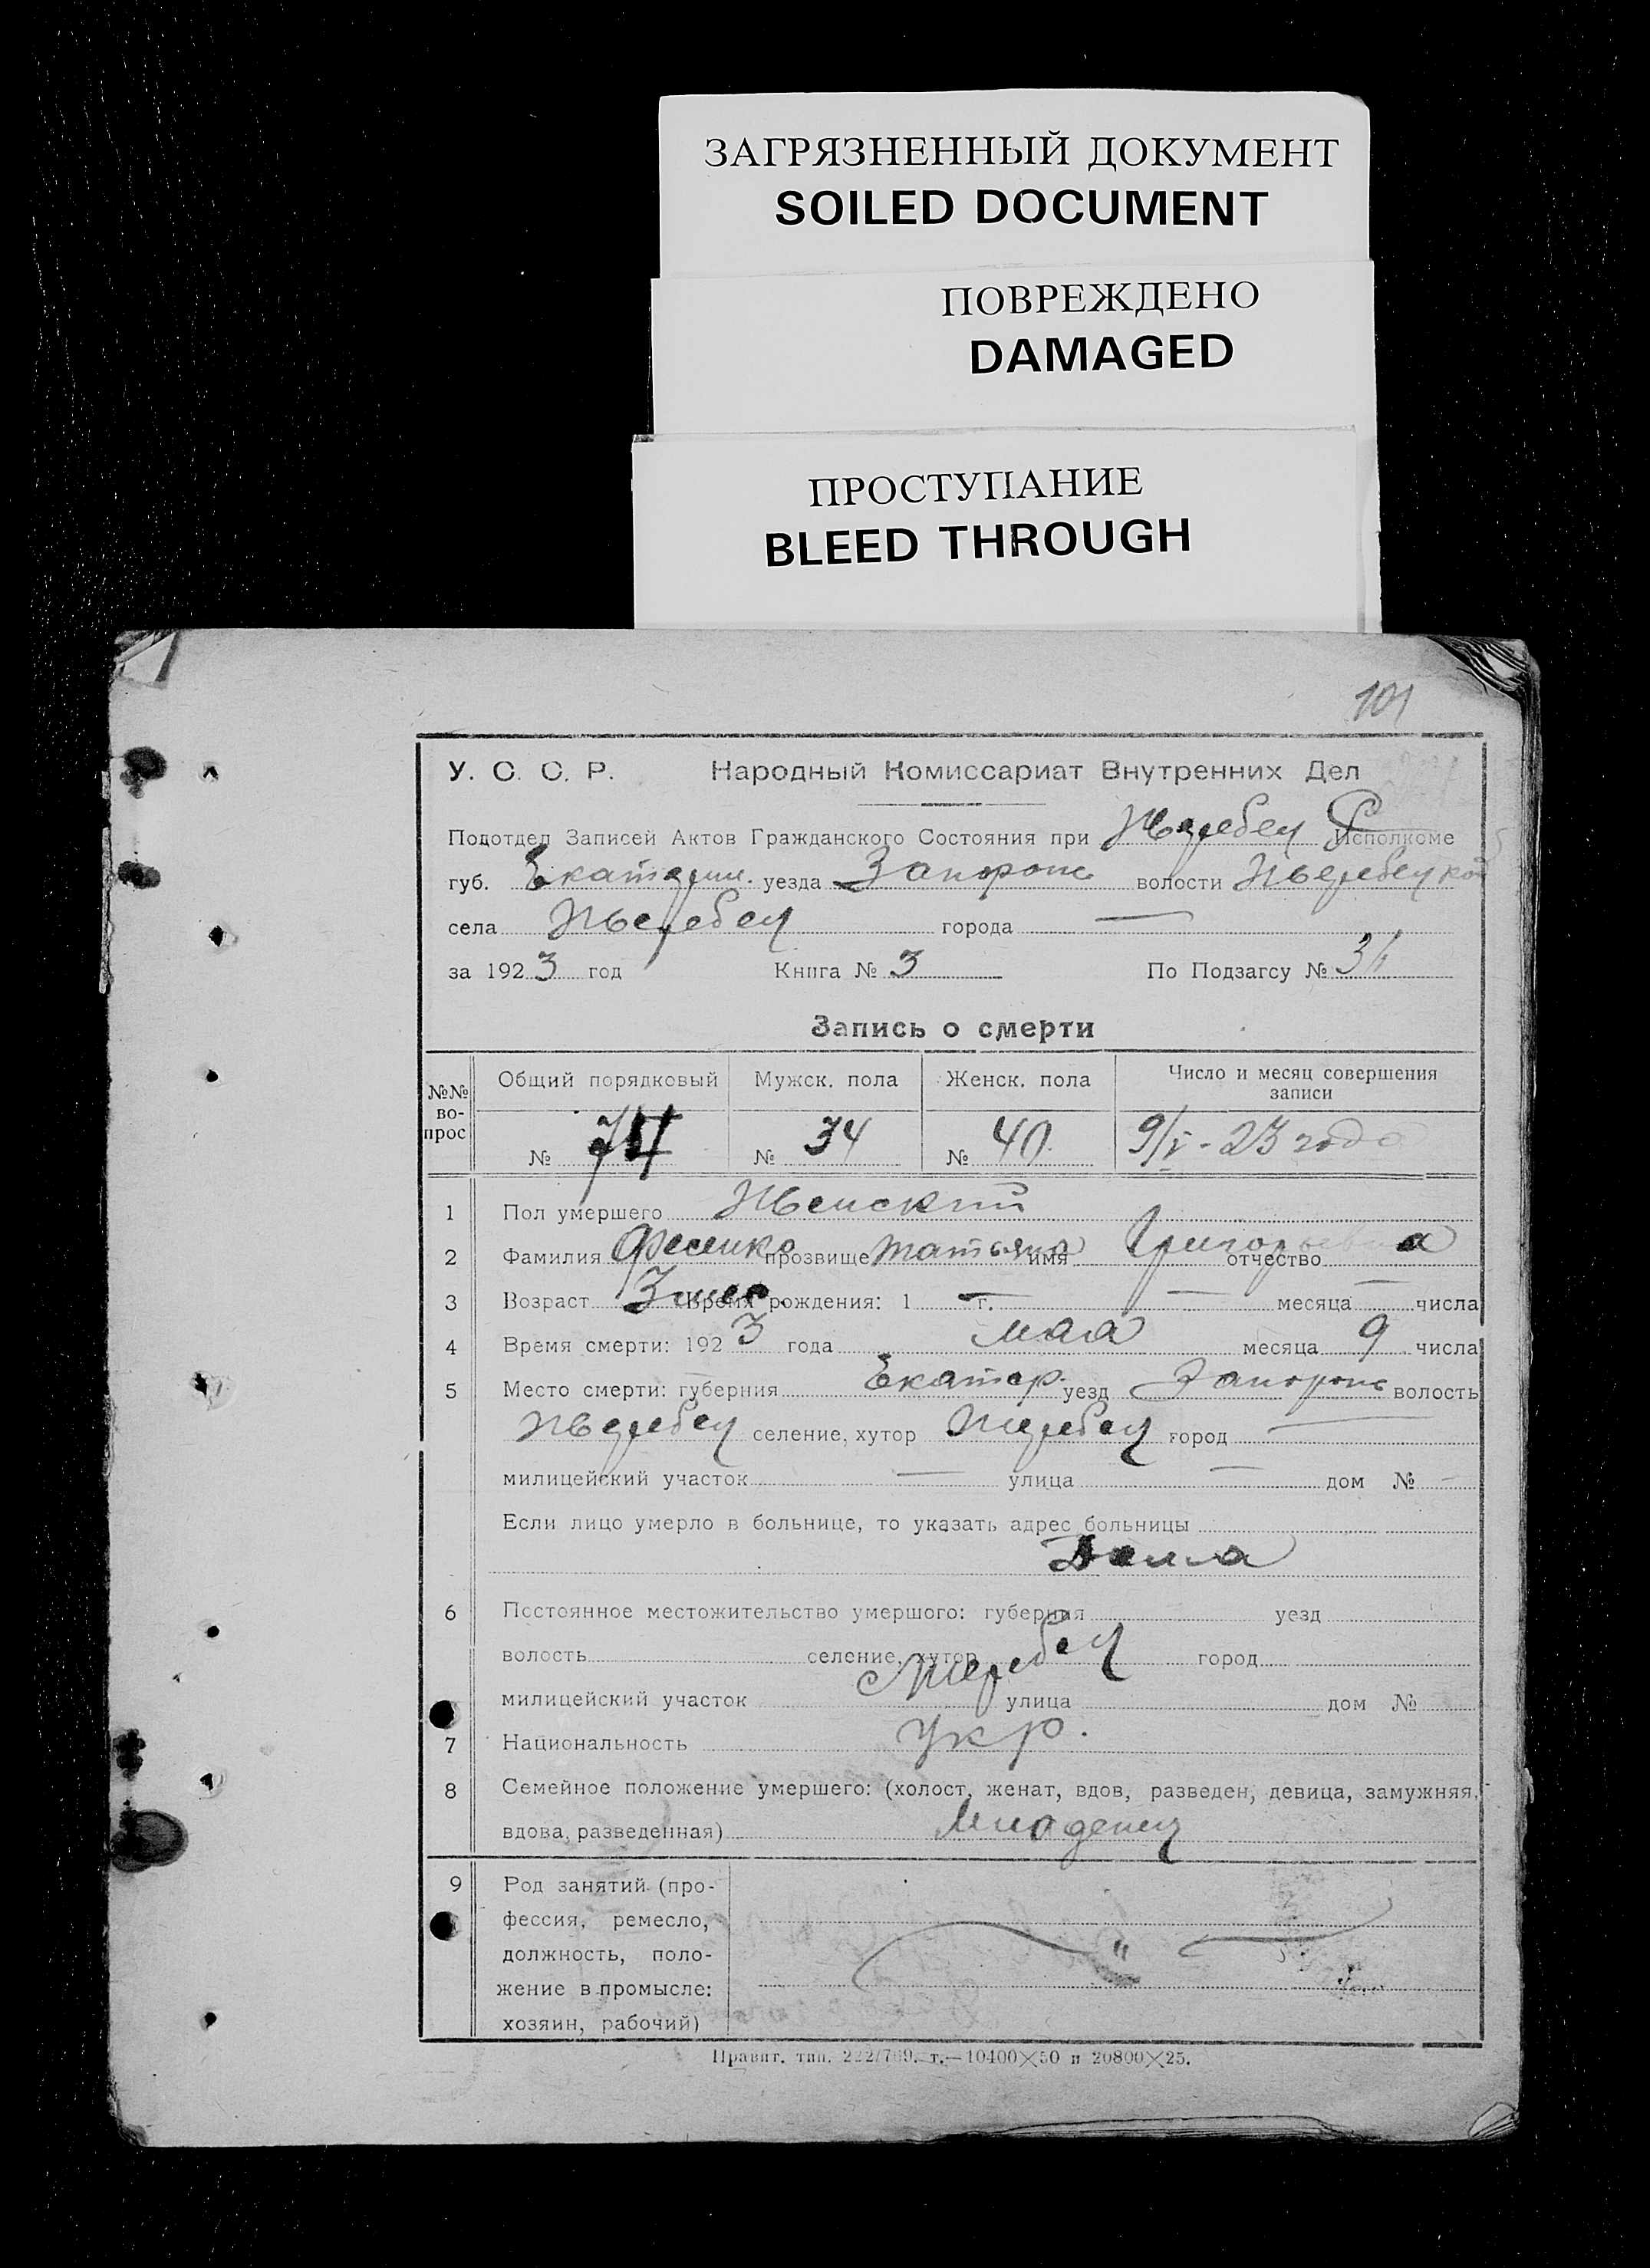 ЗАГРЯЗНЕННЫЙ ДОКУМЕНТ
SOILED DOCUMENT
ПОВРЕЖДЕНО
DAMAGED
ПРОСТУПАНИЕ
BLEED THROUGH
101
У. С. С. Р. Народный Комиссариат Внутренних Дел
Подотдел Записей Актов Гражданского Состояния при Жеребец Р Исполкоме
губ. Екатерин. уезда Запорож волости Жеребецкой
села Жеребец города —
за 1923 год Книга № 3 По Подзагсу №
Запись о смерти
№№ во-прос Общий порядковый Мужск. пола Женск. пола Число и месяц совершения записи
№ 74 № 34 № 40 9/V - 23 года
1 Пол умершего Женский
2 Фамилия Фесенко прозвище Татьяна имя Григорьевна отчество
3 Возраст 3 Время рождения: 1 — г. — месяца — числа
4 Время смерти: 1923 года мая месяца 9 числа
5 Место смерти: губерния Екатер. уезд Запорож волость
Жеребец селение, хутор Жеребец город —
милицейский участок — улица — дом № —
Если лицо умерло в больнице, то указать адрес больницы
Дома
6 Постоянное местожительство умершого: губерния уезд
волость селение, хутор Жеребец город
милицейский участок улица дом №
7 Национальность укр.
8 Семейное положение умершего: (холост, женат, вдов, разведен, девица, замужняя,
вдова, разведенная) Младенец
9 Род занятий (про-
фессия, ремесло,
должность, поло- "
жение в промысле:
хозяин, рабочий)
Правит. тип. 222/769. т.—10400×50 и 20800×25.